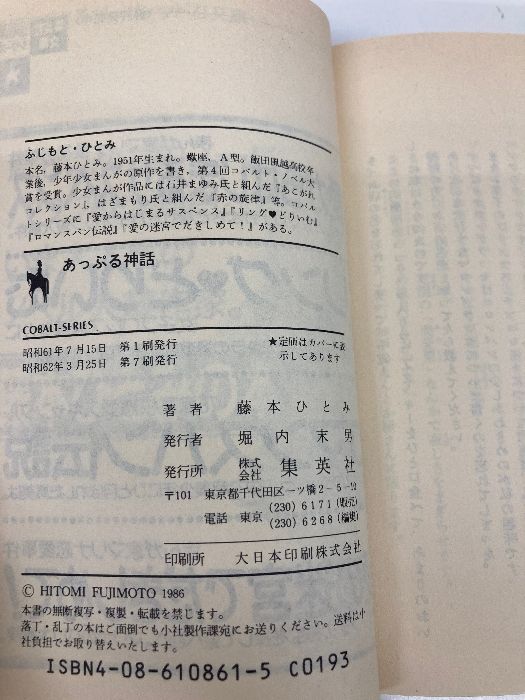 ふじもと・ひとみ
本名、藤本ひとみ。1951年生まれ。蠍座、A型。飯田風越高校卒
業後、少年少女まんがの原作を書き、第4回コバルト・ノベル大
賞を受賞。少女まんが作品には石井まゆみ氏と組んだ『あこがれ
コレクション』、はざまもり氏と組んだ『赤の旋律』等。コバル
トシリーズに『愛からはじまるサスペンス』『リング♥どりいむ』
『ロマンスパン伝説』『愛の迷宮でだきしめて!』がある。
あっぷる神話
COBALT-SERIES
昭和61年7月15日 第1刷発行
昭和62年3月25日 第7刷発行
★定価はカバーに表
示してあります
著者 藤本ひとみ
発行者 堀内末男
発行所 株式会社 集英社
〒101 東京都千代田区一ツ橋2-5-10
電話 東京 (230)6171(販売)
(230)6268(編集)
印刷所 大日本印刷株式会社
© HITOMI FUJIMOTO 1986
本書の無断複写・複製・転載を禁じます。
落丁・乱丁の本はご面倒でも小社製作課宛にお送りください。送料は小
社負担でお取り替えいたします。
ISBN4-08-610861-5 C0193